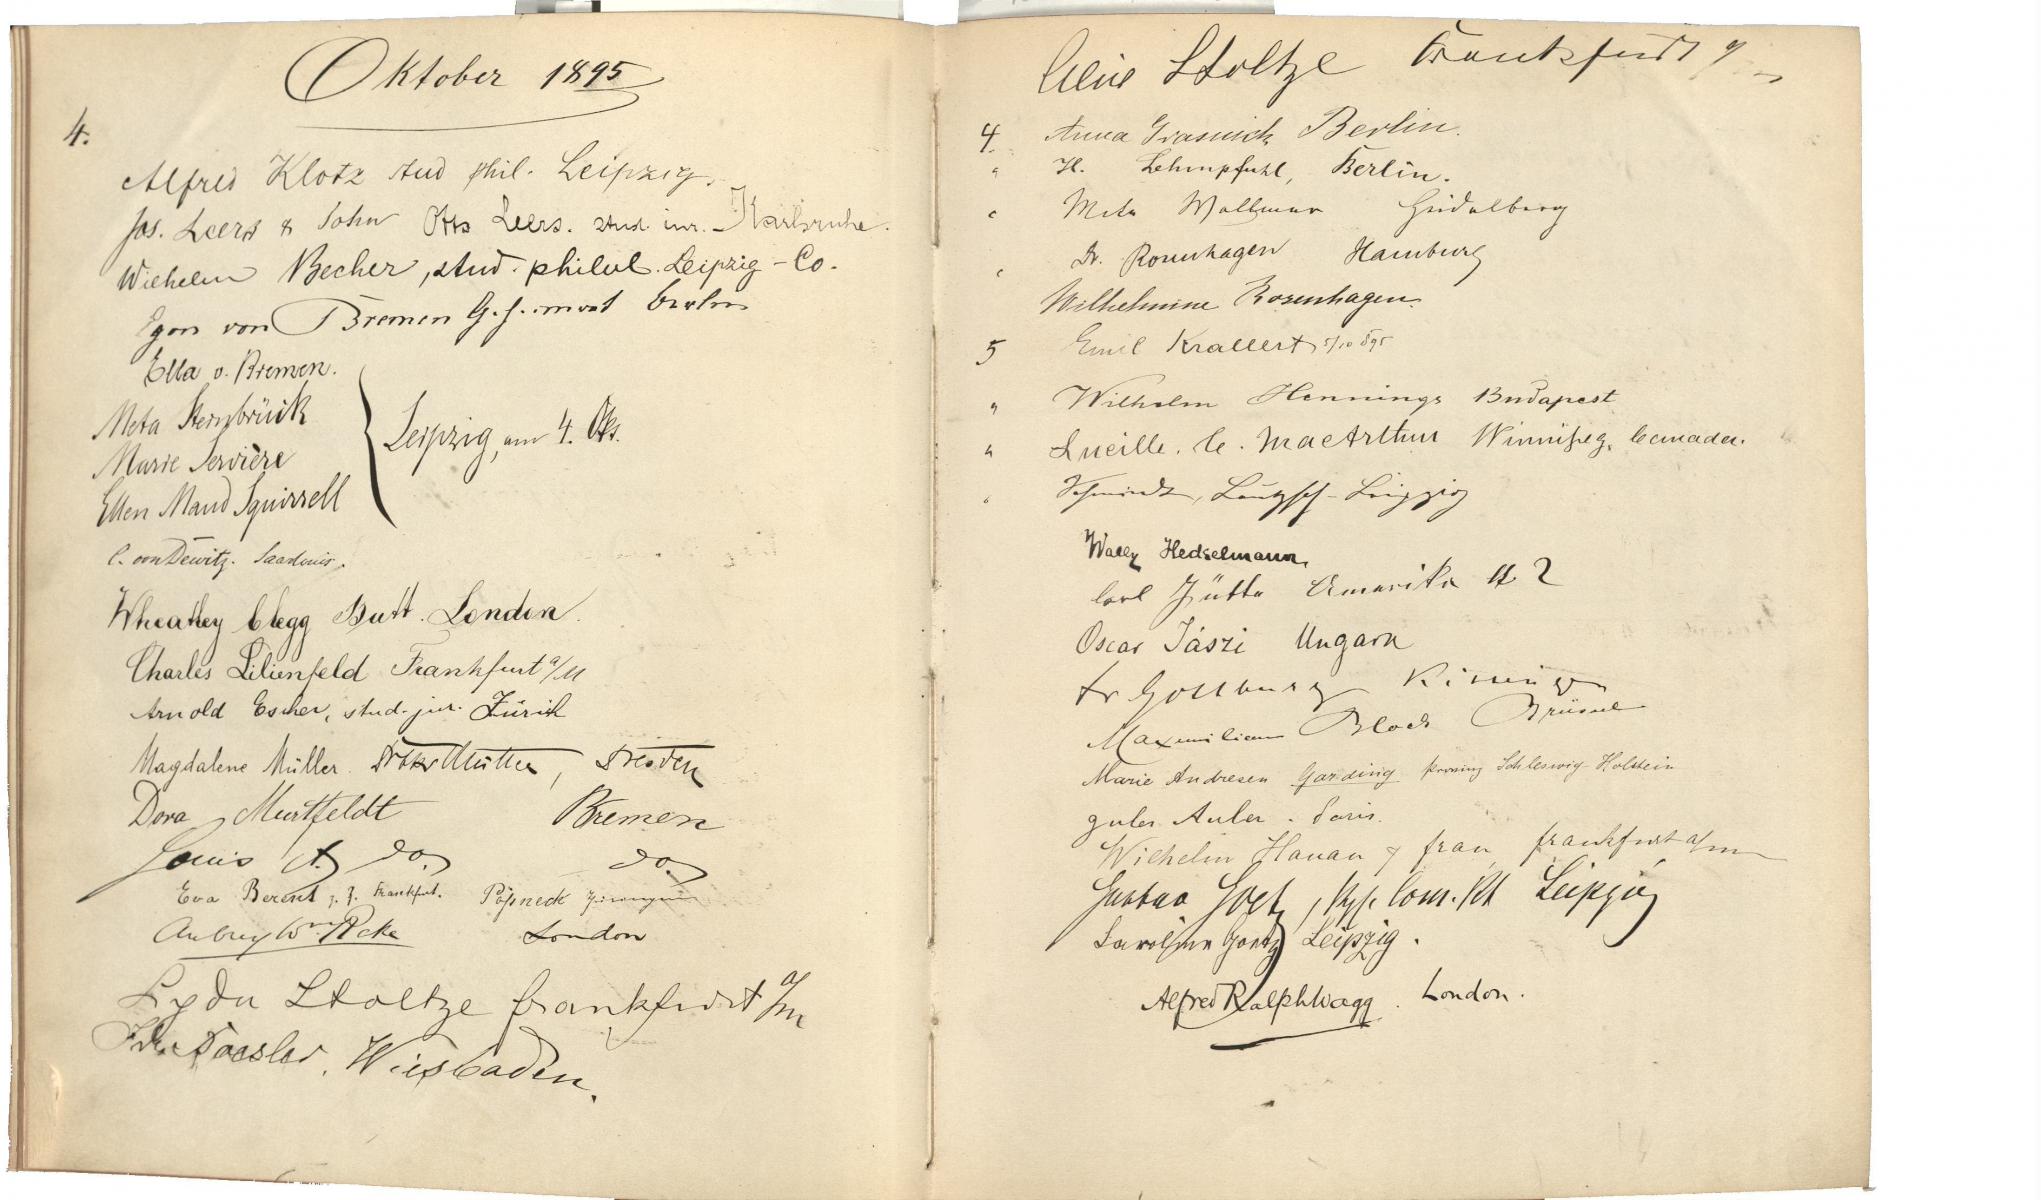 Oktober 1895
4.
Alfred Klotz stud phil. Leipzig.
Jos. Leers & Sohn Otto Leers. stud. iur. Karlsruhe.
Wilhelm Becher, stud. philol. Leipzig-Co.
Egon von Bremen Berlin
Ella v. Bremen.
Meta Sternbrück
Marie Servière
Leipzig, am 4. Okt.
Ellen Maud Squirrell
C. von Dewitz. Saarlouis.
Wheatley Clegg Butt. London.
Charles Lilienfeld Frankfurt a/M
Arnold Escher, stud. jur. Zürich
Magdalene Müller. Müller, Dresden
Dora Murtfeldt Bremen
Louis A. do. do.
Eva Berent z. Z. Frankfurt. Pößneck
Aubrey Wm London
Lyda Stoltze Frankfurt a/M
Wiesbaden.
Stoltze Frankfurt a/
4. Anna Grasnick Berlin.
" H. Lehmpfuhl, Berlin.
" Meta Wollmar Heidelberg
" Dr. Rosenhagen Hamburg
Wilhelmine Rosenhagen.
5 Emil Krallert 5/10 895
" Wilhelm Hennings Budapest
" Lucille. C. MacArthur Winnipeg. Canada.
" Schmidt, Leutzsch-Leipzig
Wally Heckelmann.
Carl Jütte Amerika
Oscar Jászi Ungarn
Maximilian Bloch Brüssel
Marie Andresen Garding Provinz Schleswig-Holstein
Jules Auler. Paris.
Wilhelm Hanau & frau, frankfurt a/m
Gustav Goetz, Leipzig
Goetz Leipzig.
Alfred Ralph Wagg. London.